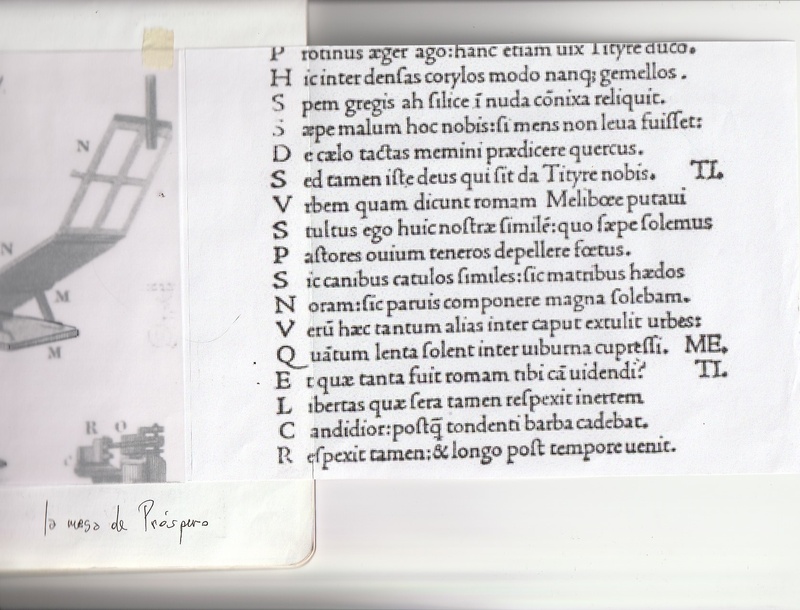 P rotinus æger ago:hanc etiam uix Tityre duco.
H ic inter denſas corylos modo nanq; gemellos.
S pem gregis ah ſilice ī nuda cōnixa reliquit.
S æpe malum hoc nobis:ſi mens non leua fuiſſet:
D e cælo tactas memini prædicere quercus.
S ed tamen iſte deus qui ſit da Tityre nobis. TI.
V rbem quam dicunt romam Melibœe putaui
S tultus ego huic noſtræ ſimilē:quo ſæpe ſolemus
P aſtores ouium teneros depellere fœtus.
S ic canibus catulos ſimiles:ſic matribus hædos
N oram:ſic paruis componere magna ſolebam.
V erū hæc tantum alias inter caput extulit urbes:
Q uātum lenta ſolent inter uiburna cupreſſi. ME.
E t quæ tanta fuit romam tibi cā uidendi? TI.
L ibertas quæ ſera tamen reſpexit inertem
C andidior:poſtq̄ tondenti barba cadebat.
R eſpexit tamen:& longo poſt tempore uenit.
N
N
M
M
R O
la mesa de Próspero